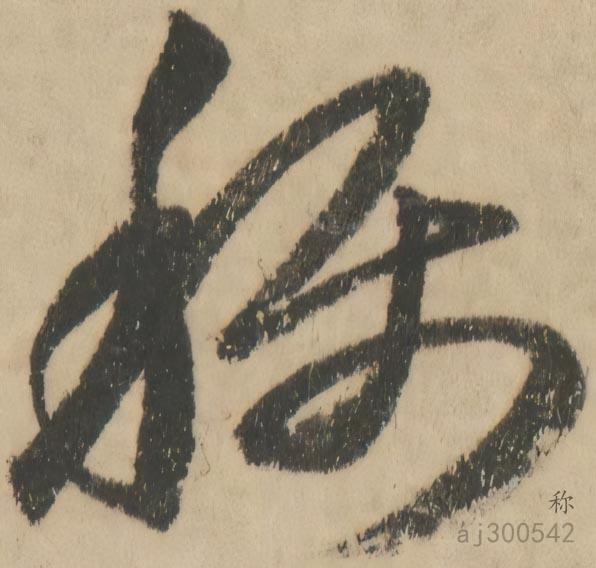 称
称
áj300542